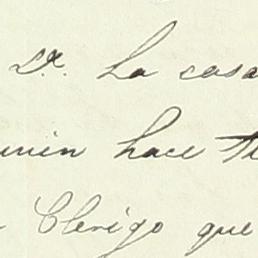 Dr. La casa
hace
Clerigo que